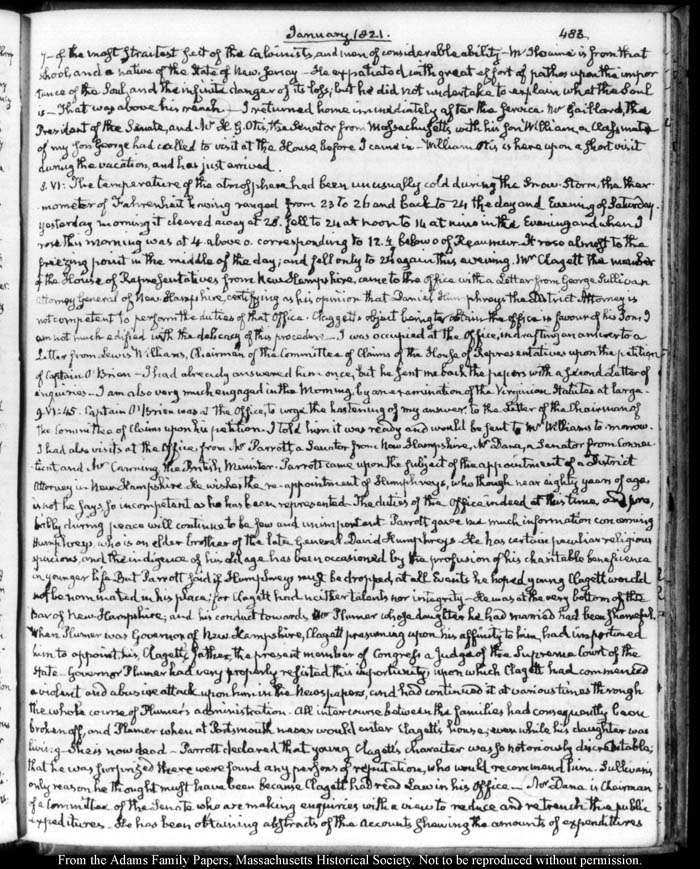 January 1821.
488
7— of the most straitest sect of the Calvinists, and men of considerable ability— Mr is from that
school, and a native of the State of New Jersey— He expatiated with great effort of pathos upon the impor
tance of the Soul, and the infinite danger of its loss; but he did not undertake to explain what the Soul
is— That was above his reach— I returned home immediately after the service. Mr Gaillard, the
President of the Senate, and Mr H. G. Otis, the Senator from Massachusetts with his Son William, a Classmate
of my Son George had called to visit at the House, before I came in— William Otis is here upon a short visit
during the vacation, and has just arrived.
8. VI: The temperature of the atmosphere had been unusually cold during the Snow-Storm, the ther
mometer of Fahrenheit having ranged from 23 to 26 and back to 24 the day and Evening of Saturday.
yesterday morning it cleared away at 28. fell to 24 at noon to 14 at nine in the Evening and when I
rose this morning was at 4 above 0. corresponding to 12.4 below 0 of Reaumur. It rose almost to the
freezing point in the middle of the day; and fell only to 24 again this evening. Mr Clagett the member
of the House of Representatives from New Hampshire, came to the office with a Letter from George Sullivan
Attorney General of New Hampshire, certifying as his opinion that Daniel Humphreys the District Attorney is
not competent to perform the duties of that Office. Claggett's object being to obtain the office in favour of his Son. I
am not much edified with the delicacy of this procedure— I was occupied at the office, in drafting an answer to a
Letter from Lewis Williams, Chairman of the Committee of Claims of the House of Representatives upon the petition
of Captain O'Brien— I had already answered him once, but he sent me back the papers with a second Letter of
enquiries— I am also very much engaged in the Morning by an examination of the Virginian Statutes at large.
9. VI:45. Captain O'Brien was at the Office, to urge the hastening of my answer, to the Letter of the Chairman of
the Committee of Claims upon his petition. I told him it was ready and would be sent to Mr Williams to morrow.
I had also visits at the Office from Mr Parrott, a Senator from New Hampshire, Mr Dana, a Senator from Connec
ticut and Mr Canning the British Minister. Parrott came upon the subject of the appointment of a District
Attorney in New-Hampshire. He wishes the re-appointment of Humphreys, who though near eighty years of age,
is not he says so incompetent as he has been represented— The duties of the Office indeed at this time, and pro,
bably during peace will continue to be few and unimportant. Parrott gave me much information concerning
Humphreys, who is an elder brother of the late General David Humphreys. He has certain peculiar religious
opinions, and the indigence of his old age has been occasioned by the profusion of his charitable beneficence
in younger life. But Parrott said if Humphreys must be dropped, at all Events he hoped young Clagett would
not be nominated in his place; for Clagett had neither talents nor integrity— He was at the very bottom of the
Bar of New Hampshire; and his conduct towards Mr Plumer whose daughter he had married had been shameful.
When Plumer was Governor of New Hampshire, Clagett presuming upon his affinity to him, had importuned
him to appoint his, Clagett's father, the present member of Congress a Judge of the Supreme Court of the
State— Governor Plumer had very properly resisted this importunity, upon which Clagett had commenced
a violent and abusive attack upon him in the Newspapers, and had continued it at various times through
the whole course of Plumer's administration. All intercourse between the families had consequently been
broken off, and Plumer when at Portsmouth never would enter Clagett's house, even while his daughter was
living— She is now dead— Parrott declared that young Clagett's character was so notoriously discreditable,
that he was surprized there were found any persons of reputation, who would recommend him. Sullivan's
only reason he thought must have been because Clagett had read Law in his Office— Mr Dana is Chairman
of a Committee of the Senate who are making enquiries with a view to reduce and retrench the public
expeditures. He has been obtaining abstracts of the accounts shewing the amounts of expenditures
From the Adams Family Papers, Massachusetts Historical Society. Not to be reproduced without permission.